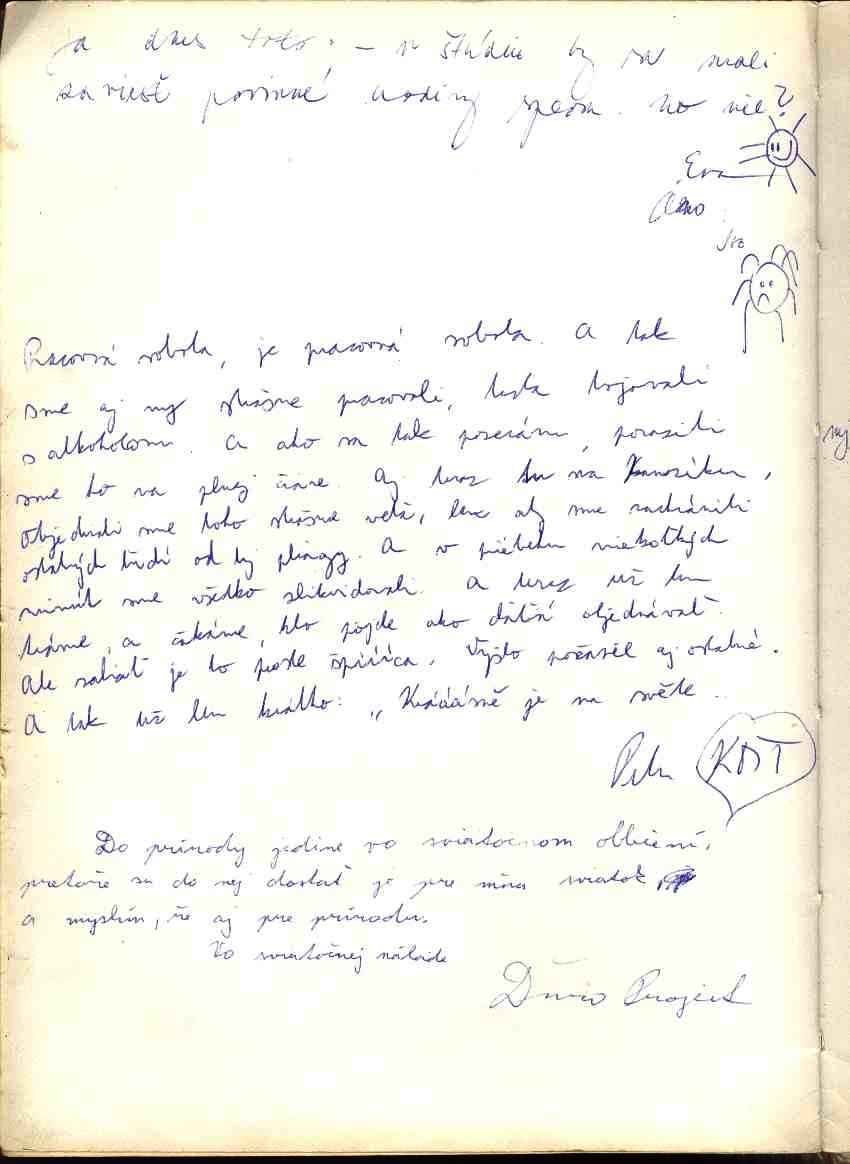 ja dnes toto: – v štúdiu by sa mali
zaviesť povinné hodiny spevu. No nie?
Eva
Áno
Iva
Pracovná sobota, je pracovná sobota. A tak
sme aj my strašne pracovali, teda bojovali
s alkoholom. A ako sa tak pozerám, porazili
sme ho na plnej čiare. Aj teraz tu na
objednali sme toho strašne veľa, len aby sme zachránili
ostatných ľudí od tej plagy. A v priebehu niekoľkých
minút sme všetko zlikvidovali. A teraz už len
a čakáme, kto pôjde ako ďalší objednávať.
Ale zabíjať je to podľa špiónca. Vyšlo počasie aj ostatné.
A tak už len krátko: „Krááásně je na světe..
Peter KOŤ
Do prírody jedine vo sviatočnom oblečení,
pretože sa do nej dostať je pre mňa sviatok
a myslím, že aj pre prírodu.
Vo sviatočnej nálade
Ďuro